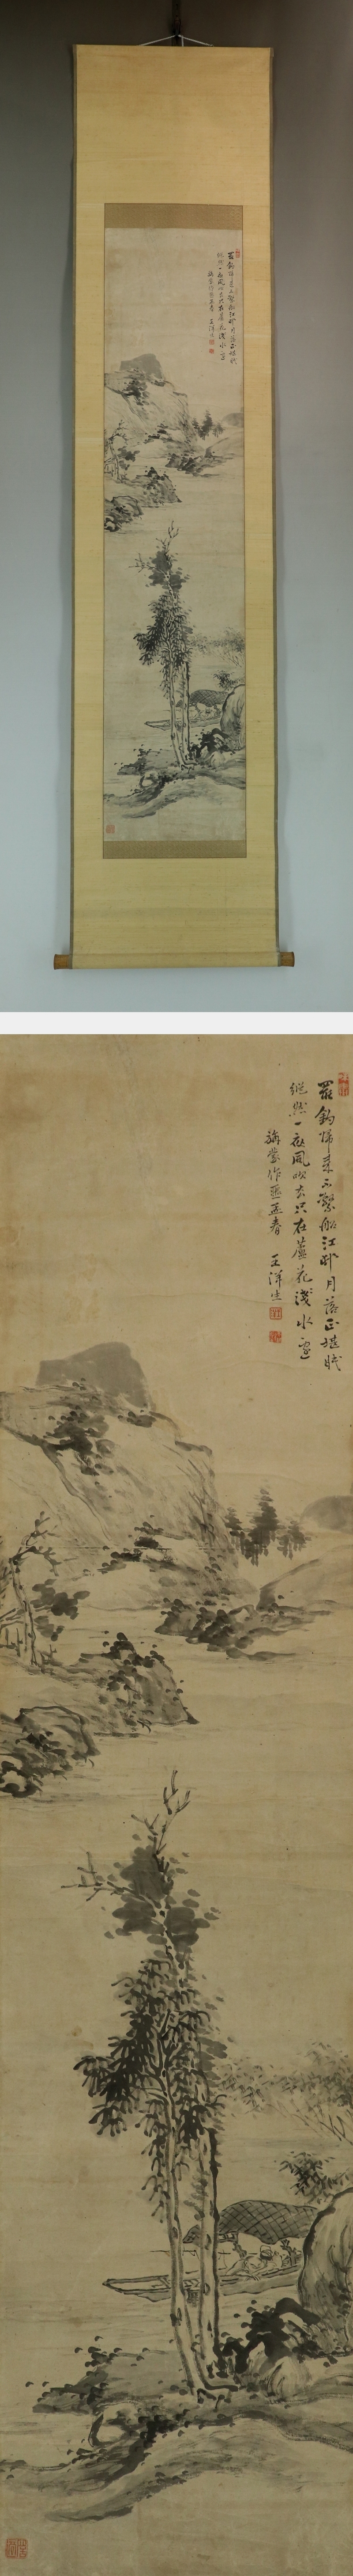 罷釣歸來不繫船江邨月落正堪眠
縱然一夜風吹去只在蘆花淺水邊
旃蒙作噩孟春 王洋生